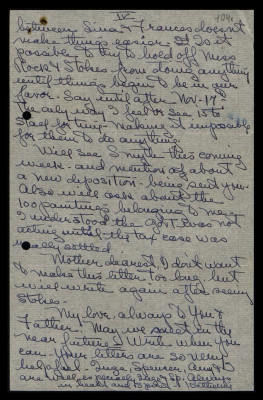 IV
between Sina & Frances doesn't
make things easier. Is it
possible to try to hold off Miss
Rocke & Stokes from doing anything
until things begin to be in our
favor. Say until after Nov-17?
The only way I feel or see is to
stall for time - making it impossible
for them to do anything.
Will see Smith this coming
week - and mention of about
a new deposition - being sent you.
Also will ask about the
100 paintings belonging to me?
I understood the Gov't was not
acting until the tax case was
really settled.
Mother dearest I don't want
to make this letter too long, but
will write again after seeing
Stokes.
My love, always to you &
Father. May we meet in the
near future? Write when you
can - your letters are so very
helpful. Inge, Spencer,
are well, especially Inge & Sp. Always
in heart and Spirit,